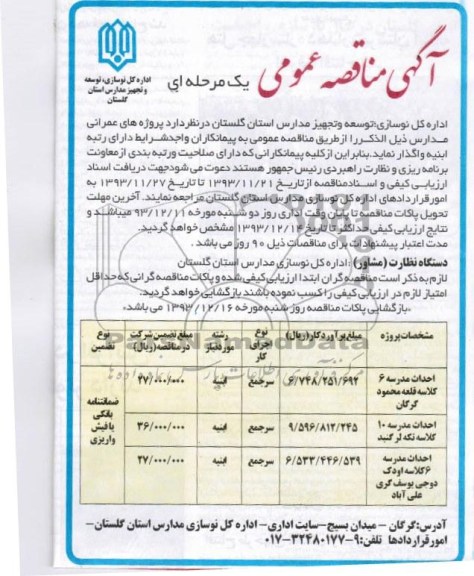 آگهی مناقصه عمومی
یک مرحله ای
اداره کل نوسازی، توسعه
و تجهیز مدارس استان
گلستان
اداره کل نوسازی؛توسعه وتجهیز مدارس استان گلستان درنظردارد پروژه های عمرانی
مدارس ذیل الذکررا ازطریق مناقصه عمومی به پیمانکاران واجدشرایط دارای رتبه
ابنیه واگذار نماید.بنابراین ازکلیه پیمانکارانی که دارای صلاحیت ورتبه بندی ازمعاونت
برنامه ریزی و نظارت راهبردی رئیس جمهور هستند دعوت می شودجهت دریافت اسناد
ارزیابی کیفی و اسنادمناقصه ازتاریخ ۱۳۹۳/۱۱/۲۱ تا تاریخ ۱۳۹۳/۱۱/۲۷ به
امورقراردادهای اداره کل نوسازی مدارس استان گلستان مراجعه نمایند. آخرین مهلت
تحویل پاکات مناقصه تا پایان وقت اداری روز دو شنبه مورخه ۹۳/۱۲/۱۱ میباشد و
نتایج ارزیابی کیفی حداکثر تا تاریخ ۱۳۹۳/۱۲/۱۴ مشخص خواهد گردید.
مدت اعتبار پیشنهادات برای مناقصات ذیل ۹۰ روز می باشد .
دستگاه نظارت (مشاور) : اداره کل نوسازی مدارس استان گلستان
لازم به ذکر است مناقصه گران ابتدا ارزیابی کیفی شده و پاکات مناقصه گرانی که حداقل
امتیاز لازم در ارزیابی کیفی را کسب نموده باشند بازگشایی خواهد گردید.
«بازگشایی پاکات مناقصه روز شنبه مورخه ۱۳۹۳/۱۲/۱۶ می باشد»
مشخصات پروژه | مبلغ برآورد کار(ریال) | نوع اجرای کار | رشته موردنیاز | مبلغ تضمین شرکت درمناقصه (ریال) | نوع تضمین
احداث مدرسه ۶ کلاسه قلعه محمود گرگان | ۶/۷۴۸/۲۵۱/۶۹۲ | سرجمع | ابنیه | ۲۷/۰۰۰/۰۰۰ | ضمانتنامه بانکی یا فیش واریزی
احداث مدرسه ۱۰ کلاسه تکه لر گنبد | ۹/۵۹۶/۸۱۲/۲۴۵ | سرجمع | ابنیه | ۳۶/۰۰۰/۰۰۰
احداث مدرسه ۶کلاسه اودک دوجی یوسف کری علی آباد | ۶/۵۳۳/۴۴۶/۵۳۹ | سرجمع | ابنیه | ۲۷/۰۰۰/۰۰۰
آدرس:گرگان – میدان بسیج–سایت اداری– اداره کل نوسازی مدارس استان گلستان–
امورقراردادها تلفن:۹–۰۱۷-۳۲۴۸۰۱۷۷